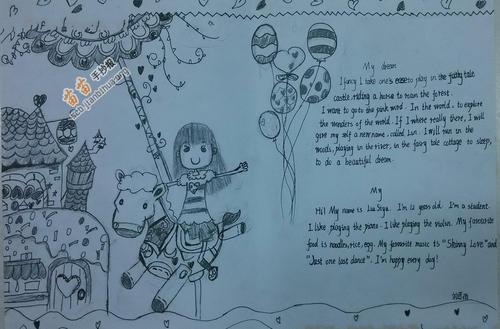 苗苗手抄报
My dream
I fancy I take one's ease to play in the fairy tale
castle, riding a horse to roam the forest.
I want to go to the pink wind. In the world, to explore
the wonders of the world. If I where really there, I will
give my self a new name, called Lin. I will run in the
woods, playing in the river, in the fairy tale cottage to sleep,
to do a beautiful dream.
My
Hi! My name is Lu Siya. I'm 12 years old. I'm a student.
I like playing the piano. I like playing the violin. My favourite
food is noodles, rice, egg. My favourite music is "Skinny Love" and
"Just one last dance". I'm happy every day!